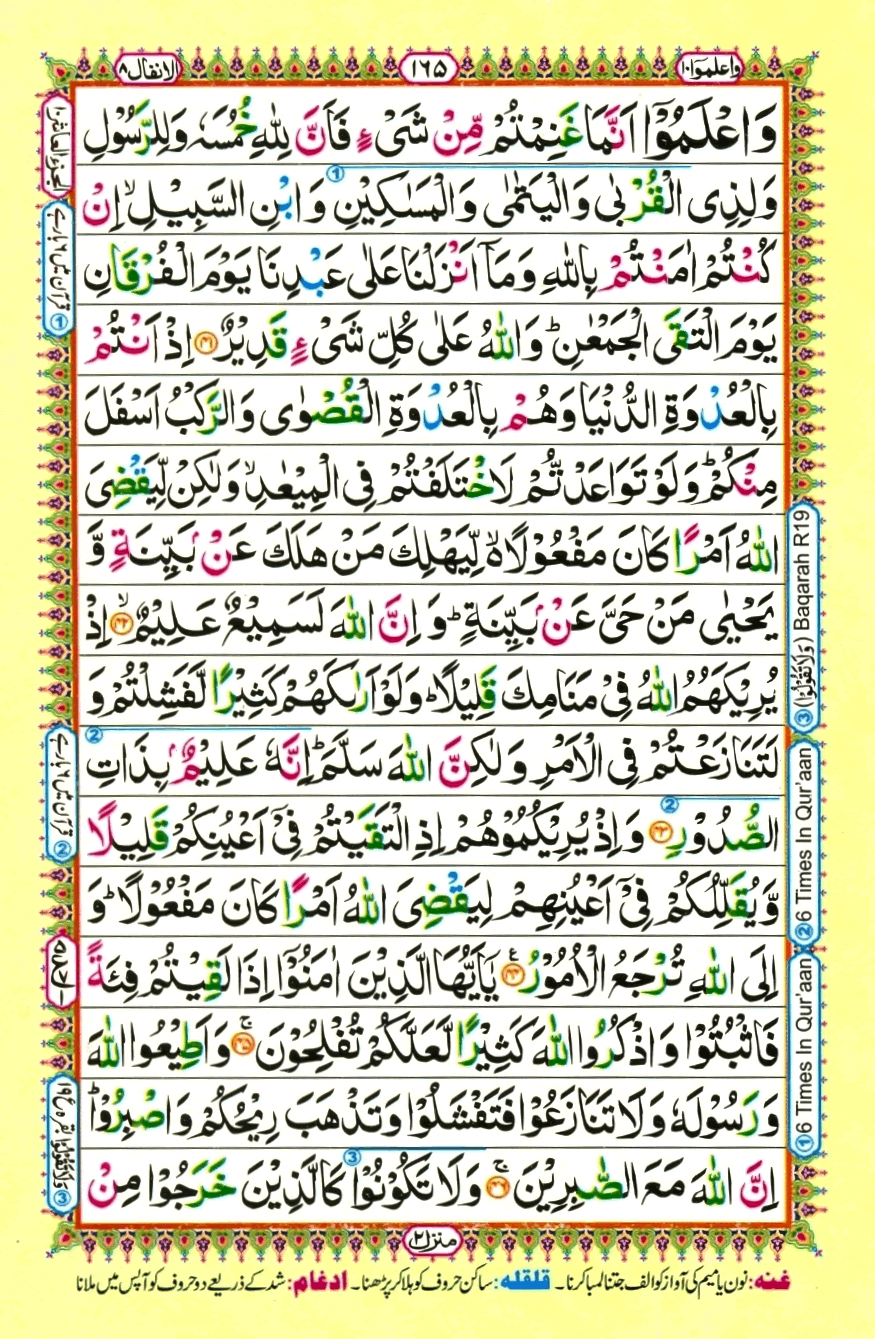 واعلموٓا ۱۰
۱۶۵
الانفال ۸
وَاعْلَمُوْۤا اَنَّمَا غَنِمْتُمْ مِّنْ شَیْءٍ فَاَنَّ لِلّٰهِ خُمُسَهٗ وَلِلرَّسُوْلِ
وَلِذِی الْقُرْبٰی وَالْیَتٰمٰی وَالْمَسٰكِیْنِ وَابْنِ السَّبِیْلِ ۙ اِنْ
كُنْتُمْ اٰمَنْتُمْ بِاللّٰهِ وَمَاۤ اَنْزَلْنَا عَلٰی عَبْدِنَا یَوْمَ الْفُرْقَانِ
یَوْمَ الْتَقَی الْجَمْعٰنِ ؕ وَاللّٰهُ عَلٰی كُلِّ شَیْءٍ قَدِیْرٌ ﴿۴۱﴾ اِذْ اَنْتُمْ
بِالْعُدْوَةِ الدُّنْیَا وَهُمْ بِالْعُدْوَةِ الْقُصْوٰی وَالرَّكْبُ اَسْفَلَ
مِنْكُمْ ؕ وَلَوْ تَوَاعَدْتُّمْ لَاخْتَلَفْتُمْ فِی الْمِیْعٰدِ ۙ وَلٰكِنْ لِّیَقْضِیَ
اللّٰهُ اَمْرًا كَانَ مَفْعُوْلًا ۙ۬ لِّیَهْلِكَ مَنْ هَلَكَ عَنْۢ بَیِّنَةٍ وَّ
یَحْیٰی مَنْ حَیَّ عَنْۢ بَیِّنَةٍ ؕ وَ اِنَّ اللّٰهَ لَسَمِیْعٌ عَلِیْمٌ ﴿۴۲﴾ ۙ اِذْ
یُرِیْكَهُمُ اللّٰهُ فِیْ مَنَامِكَ قَلِیْلًا ؕ وَلَوْ اَرٰىكَهُمْ كَثِیْرًا لَّفَشِلْتُمْ وَ
لَتَنَازَعْتُمْ فِی الْاَمْرِ وَلٰكِنَّ اللّٰهَ سَلَّمَ ؕ اِنَّهٗ عَلِیْمٌۢ بِذَاتِ
الصُّدُوْرِ ﴿۴۳﴾ وَاِذْ یُرِیْكُمُوْهُمْ اِذِ الْتَقَیْتُمْ فِیْۤ اَعْیُنِكُمْ قَلِیْلًا
وَّیُقَلِّلُكُمْ فِیْۤ اَعْیُنِهِمْ لِیَقْضِیَ اللّٰهُ اَمْرًا كَانَ مَفْعُوْلًا ؕ وَ
اِلَی اللّٰهِ تُرْجَعُ الْاُمُوْرُ ﴿۴۴﴾ یٰۤاَیُّهَا الَّذِیْنَ اٰمَنُوْۤا اِذَا لَقِیْتُمْ فِئَةً
فَاثْبُتُوْا وَاذْكُرُوا اللّٰهَ كَثِیْرًا لَّعَلَّكُمْ تُفْلِحُوْنَ ﴿۴۵﴾ ۚ وَاَطِیْعُوا اللّٰهَ
وَرَسُوْلَهٗ وَلَا تَنَازَعُوْا فَتَفْشَلُوْا وَتَذْهَبَ رِیْحُكُمْ وَاصْبِرُوْا ؕ
اِنَّ اللّٰهَ مَعَ الصّٰبِرِیْنَ ﴿۴۶﴾ ۚ وَلَا تَكُوْنُوْا كَالَّذِیْنَ خَرَجُوْا مِنْ
الجزء العاشر ۱۰
① قرآن میں ۶ بار ہے
② قرآن میں ۶ بار ہے
③ (وَلَا تَقُوْلُوْا) Baqarah R19
② 6 Times In Qur'aan
① 6 Times In Qur'aan
③ وَلَا تَقُوْلُوْا بقرہ ع ۱۹
منزل ۲
غنه: نون یا میم کی آواز کو الف جتنا لمبا کرنا۔ قلقله: ساکن حروف کو ہلا کر پڑھنا۔ ادغام: شد کے ذریعے دو حروف کو آپس میں ملانا